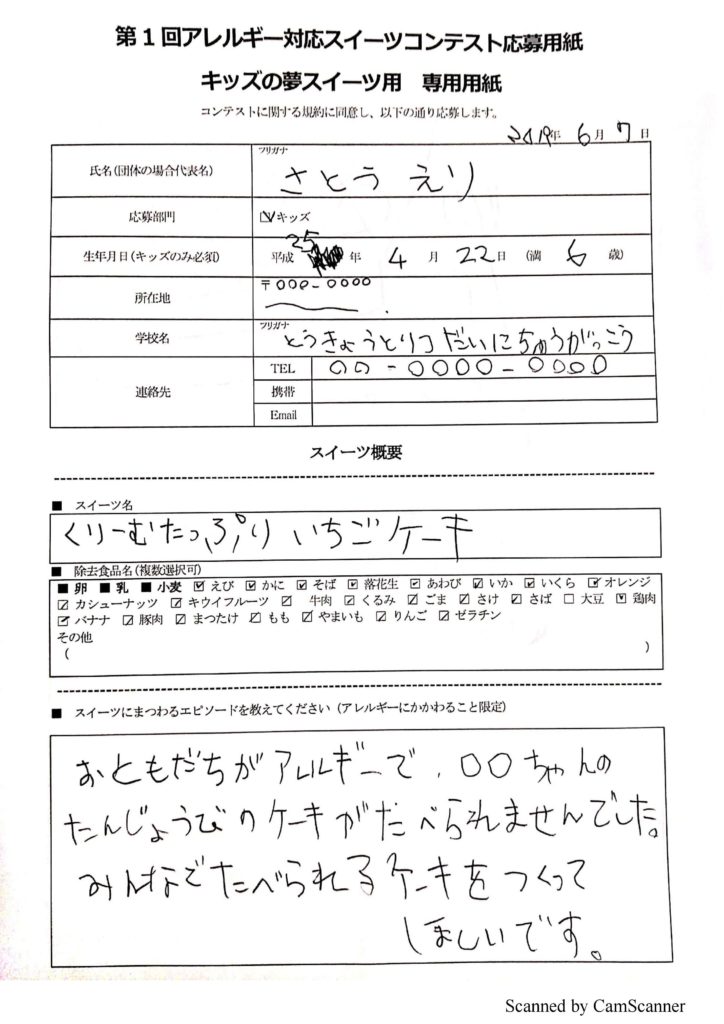 第1回アレルギー対応スイーツコンテスト応募用紙
キッズの夢スイーツ用 専用用紙
コンテストに関する規約に同意し、以下の通り応募します。
2019年 6月 7日
フリガナ
氏名(団体の場合代表名) さとう えり
応募部門 ☑キッズ
生年月日(キッズのみ必須) 平成 25 年 4 月 22 日 (満 6 歳)
所在地 〒000-0000
フリガナ
学校名 とうきょうとりつ だいにちゅうがっこう
連絡先 TEL 00-0000-0000
携帯
Email
スイーツ概要
■ スイーツ名
くりーむたっぷり いちごケーキ
■ 除去食品名(複数選択可)
■ 卵 ■ 乳 ■ 小麦 ☑ えび ☑ かに ☑ そば ☑ 落花生 ☑ あわび ☑ いか ☑ いくら ☑ オレンジ
☑ カシューナッツ ☑ キウイフルーツ ☑ 牛肉 ☑ くるみ ☑ ごま ☑ さけ ☑ さば ☐ 大豆 ☑ 鶏肉
☑ バナナ ☑ 豚肉 ☑ まつたけ ☑ もも ☑ やまいも ☑ りんご ☑ ゼラチン
その他
( )
■ スイーツにまつわるエピソードを教えてください (アレルギーにかかわること限定)
おともだちがアレルギーで、〇〇ちゃんの
たんじょうびのケーキがたべられませんでした。
みんなでたべられるケーキをつくって
ほしいです。
Scanned by CamScanner